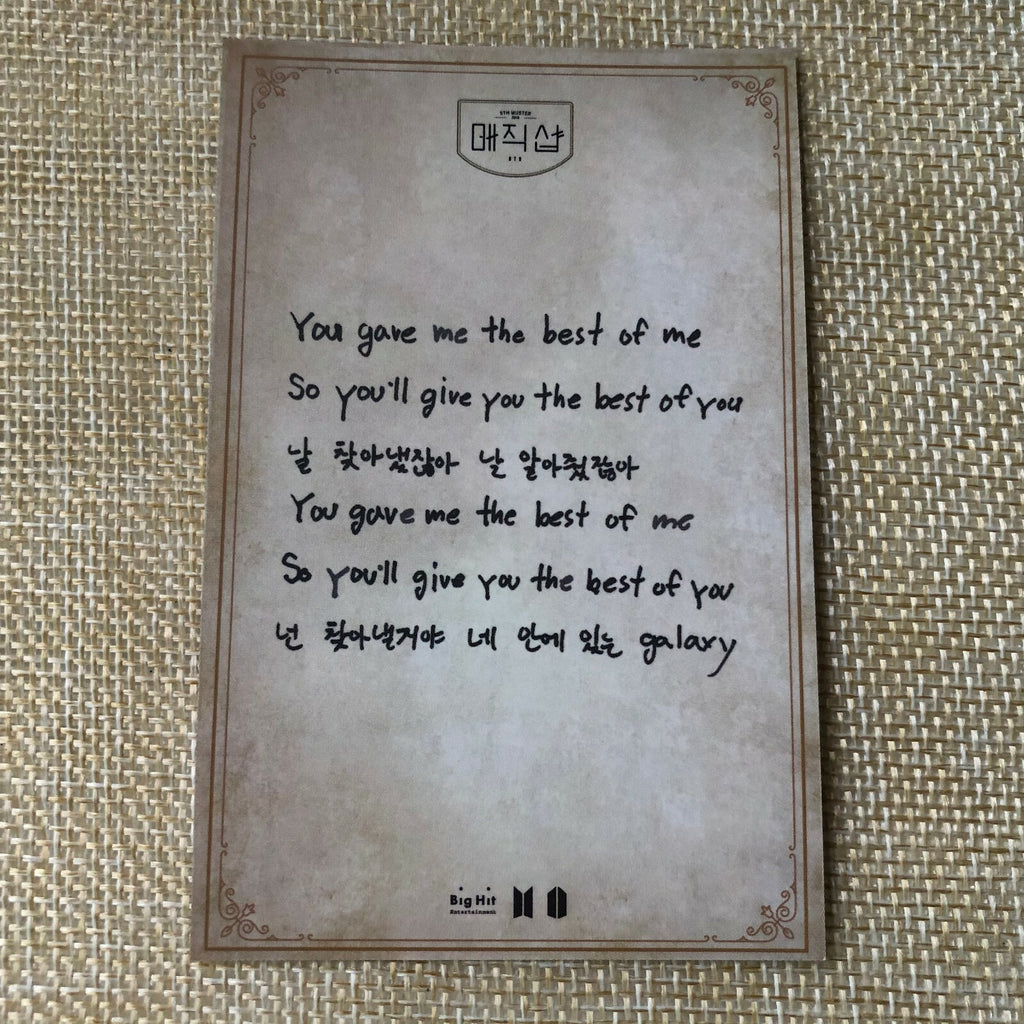 5TH MUSTER
2019
매직샵
BTS
You gave me the best of me
So you'll give you the best of you
날 찾아냈잖아 날 알아줬잖아
You gave me the best of me
So you'll give you the best of you
넌 찾아낼거야 네 안에 있는 galaxy
Big Hit
Entertainment